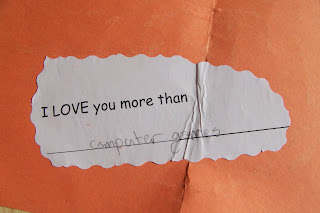 I LOVE you more than
computer games